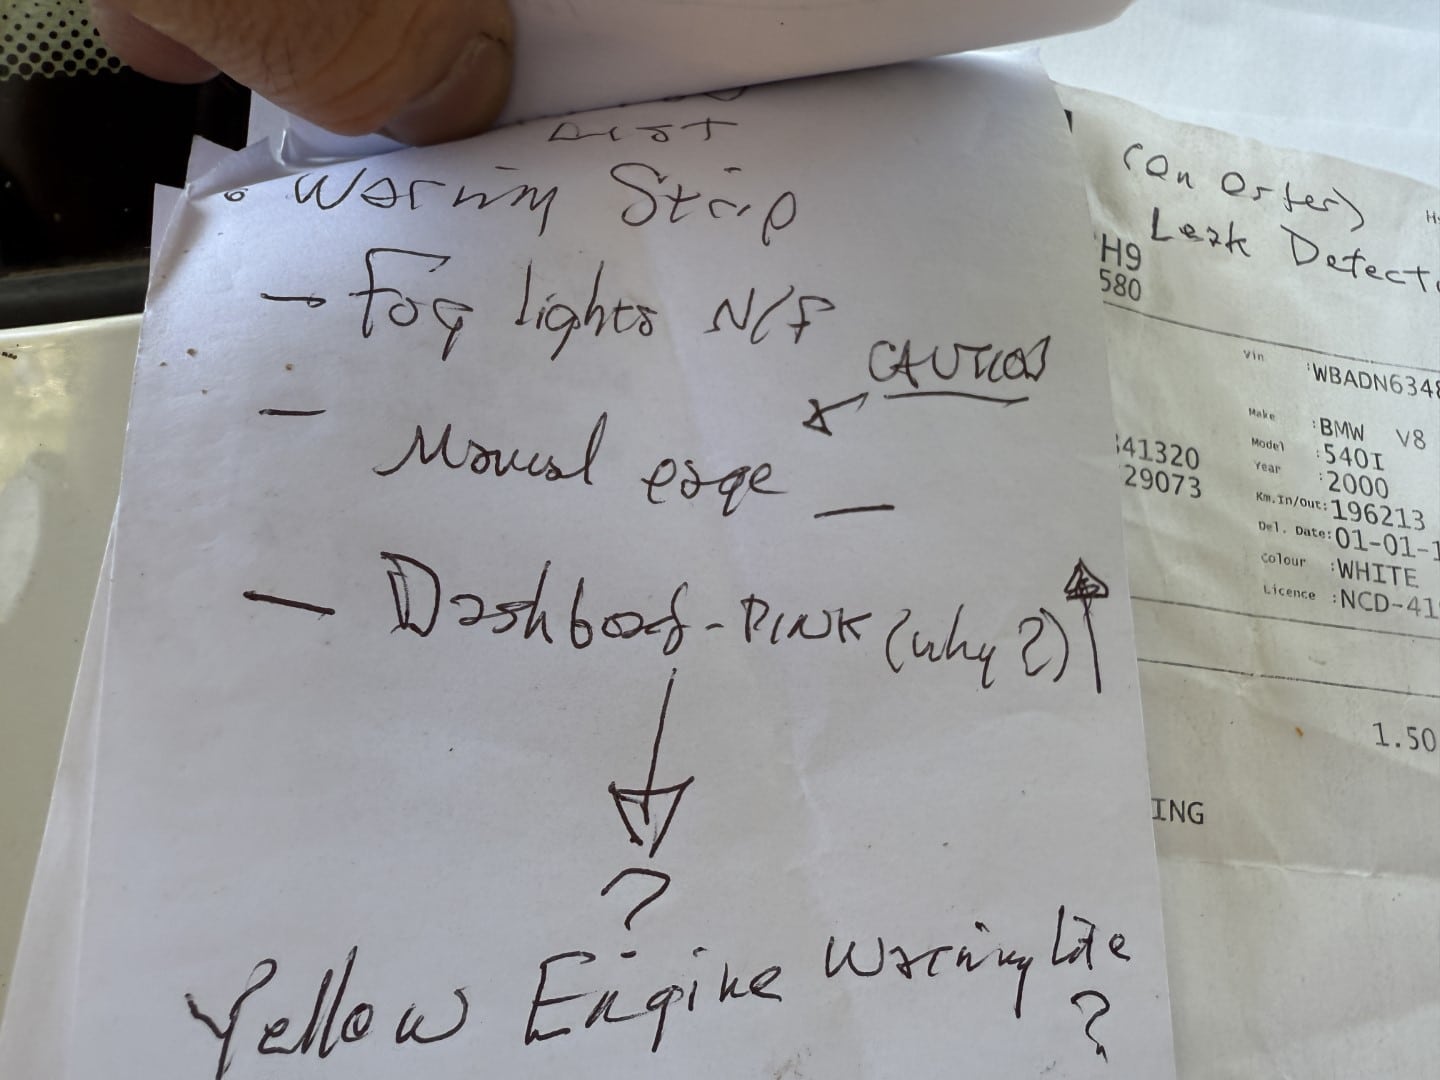 Warning Strip
- Fog lights N/F
CAUTION
- Manual eage -
- Dashboard - PINK (why?)
?
Yellow Engine Warning Lite
?
(On Order)
Leak Detect
H9
580
Vin :WBADN6348
Make :BMW V8
Model :540I
41320
Year :2000
29073
Km.In/Out: 196213
Del. Date: 01-01-1
Colour :WHITE
Licence :NCD-41
1.50
ING